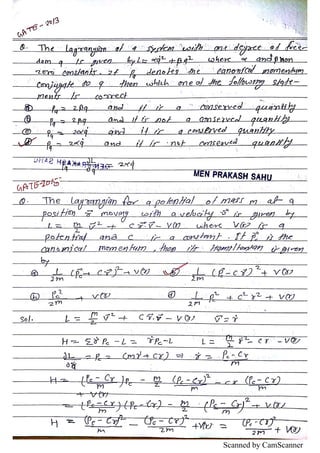 GATE-2013
Q. The lagrangian of a system with one degree of free-
dom q is given by L = αq̇² + βq² where α and β non
zero constants. If Pq denotes the canonical momentum
conjugate to q then which one of the following state-
ments is correct
Pq = 2βq and it is a conserved quantity
Pq = 2βq and it is not a conserved quantity
Pq = 2αq̇ and it is a conserved quantity
Pq = 2αq̇ and it is not conserved quantity
= 2αq̇
MEN PRAKASH SAHU
GATE-2015
Q. The Lagrangian for a potential of mass m at a
position r⃗ moving with a velocity v⃗ is given by
L = m/2 v⃗² + C r⃗.v⃗ - V(r) where V(r) is a
potential and C is a constant. If Pc is the
canonical momentum, then its Hamiltonian is given
by
(a) 1/2m (Pc + C r⃗)² + V(r) 1/2m (Pc - C r⃗)² + V(r)
Pc²/2m + V(r) (d) 1/2m Pc² + C² r² + V(r)
Sol. L = m/2 v⃗² + C r⃗.v⃗ - V(r) v⃗ = ṙ
H = Σ ṙ Pc - L = ṙ Pc - L
∂L/∂ṙ = Pc = (mṙ + Cr) ⇒ ṙ = Pc - Cr / m
H = (Pc - Cr / m) Pc - m/2 (Pc - Cr)²/m² - Cr (Pc - Cr)/m
+ V(r)
= (Pc - Cr / m)(Pc - Cr) - m/2 (Pc - Cr / m)² + V(r)
H = (Pc - Cr)²/m - (Pc - Cr)²/2m + V(r) = (Pc - Cr)²/2m + V(r)
Scanned by CamScanner